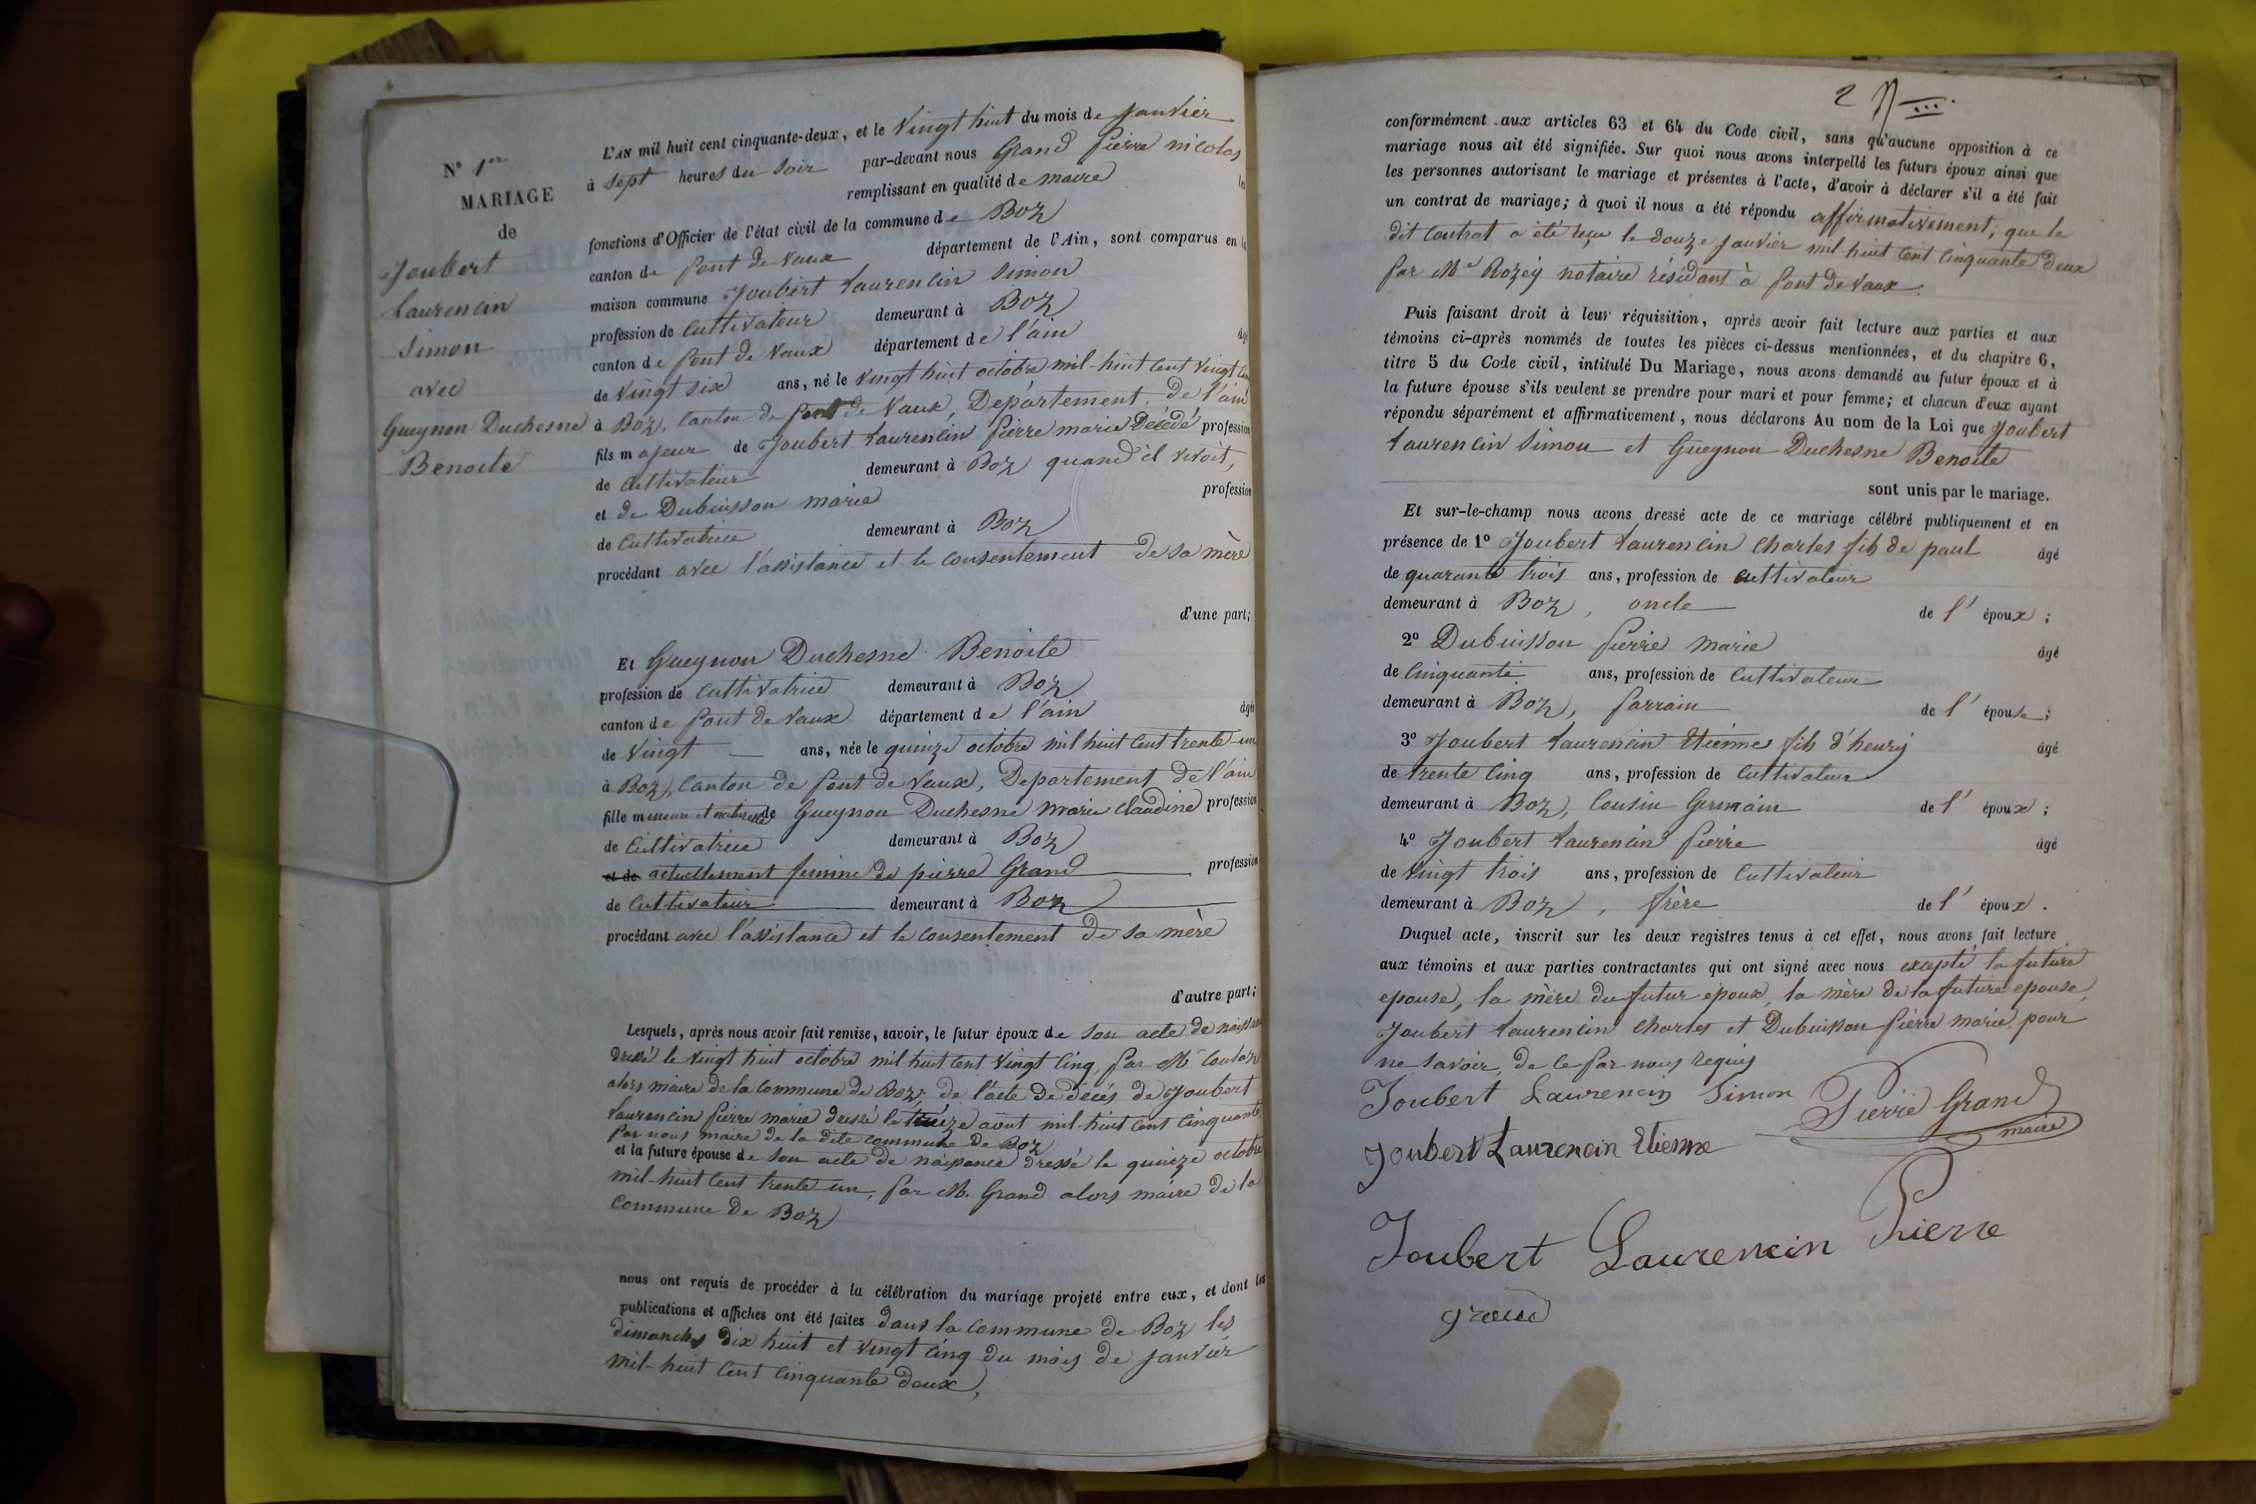 N° 1er
MARIAGE
de
Joubert
Laurencin
Simon
avec
Gueynon Duchesne
Benoite
L'AN mil huit cent cinquante-deux, et le vingt huit du mois de janvier
à sept heures du soir par-devant nous Grand pierre nicolas
remplissant en qualité de maire les
fonctions d'Officier de l'état civil de la commune de Boz
canton de pont de Vaux département de l'Ain, sont comparus en la
maison commune Joubert Laurencin Simon
profession de cultivateur demeurant à Boz
canton de pont de Vaux département de l'ain âgé
de vingt six ans, né le vingt huit octobre mil-huit cent vingt cinq
à Boz, Canton de pont de Vaux, Département de l'ain
fils majeur de Joubert Laurencin pierre marie Décédé profession
de cultivateur demeurant à Boz quand il vivoit,
et de Dubuisson marie profession
de cultivatrice demeurant à Boz
procédant avec l'assistance et le consentement de sa mère
d'une part;
Et Gueynon Duchesne Benoite
profession de cultivatrice demeurant à Boz
canton de pont de Vaux département de l'ain âgée
de vingt ans, née le quinze octobre mil huit cent trente-un
à Boz, Canton de pont de Vaux, Département de l'ain
fille mineure et naturelle de Gueynon Duchesne marie claudine profession
de cultivatrice demeurant à Boz
et de actuellement femme de pierre Grand profession
de cultivateur demeurant à Boz
procédant avec l'assistance et le consentement de sa mère
d'autre part;
Lesquels, après nous avoir fait remise, savoir, le futur époux de son acte de naissance
dressé le vingt huit octobre mil huit cent vingt cinq, par Mr
alors maire de la commune de Boz, de l'acte de décès de Joubert
Laurencin pierre marie dressé le treize août mil-huit cent cinquante
par nous maire de la dite commune de Boz
et la future épouse de son acte de naissance dressé le quinze octobre
mil-huit cent trente un, par M. Grand alors maire de la
commune de Boz
nous ont requis de procéder à la célébration du mariage projeté entre eux, et dont les
publications et affiches ont été faites dans la commune de Boz les
dimanches dix huit et vingt cinq du mois de janvier
mil-huit cent cinquante deux,
2
conformément aux articles 63 et 64 du Code civil, sans qu'aucune opposition à ce
mariage nous ait été signifiée. Sur quoi nous avons interpellé les futurs époux ainsi que
les personnes autorisant le mariage et présentes à l'acte, d'avoir à déclarer s'il a été fait
un contrat de mariage; à quoi il nous a été répondu affirmativement; que le
dit contrat a été reçu le douze janvier mil huit cent cinquante deux
par Me Rozey notaire résidant à pont de Vaux.
Puis faisant droit à leur réquisition, après avoir fait lecture aux parties et aux
témoins ci-après nommés de toutes les pièces ci-dessus mentionnées, et du chapitre 6,
titre 5 du Code civil, intitulé Du Mariage, nous avons demandé au futur époux et à
la future épouse s'ils veulent se prendre pour mari et pour femme; et chacun d'eux ayant
répondu séparément et affirmativement, nous déclarons Au nom de la Loi que Joubert
Laurencin Simon et Gueynon Duchesne Benoite
sont unis par le mariage.
Et sur-le-champ nous avons dressé acte de ce mariage célébré publiquement et en
présence de 1° Joubert Laurencin charles fils de paul âgé
de quarante trois ans, profession de cultivateur
demeurant à Boz, oncle de l'époux;
2° Dubuisson pierre marie âgé
de cinquante ans, profession de cultivateur
demeurant à Boz, parrain de l'épouse;
3° Joubert Laurencin Etienne fils d'henry âgé
de trente cinq ans, profession de cultivateur
demeurant à Boz, cousin Germain de l'époux;
4° Joubert Laurencin pierre âgé
de vingt trois ans, profession de cultivateur
demeurant à Boz, frère de l'époux.
Duquel acte, inscrit sur les deux registres tenus à cet effet, nous avons fait lecture
aux témoins et aux parties contractantes qui ont signé avec nous excepté la future
epouse, la mère du futur époux, la mère de la future epouse,
Joubert Laurencin charles et Dubuisson pierre marie pour
ne savoir, de ce par nous requis
Joubert Laurencin Simon Pierre Grand
maire
Joubert Laurencin Etienne
Joubert Laurencin Pierre
grand